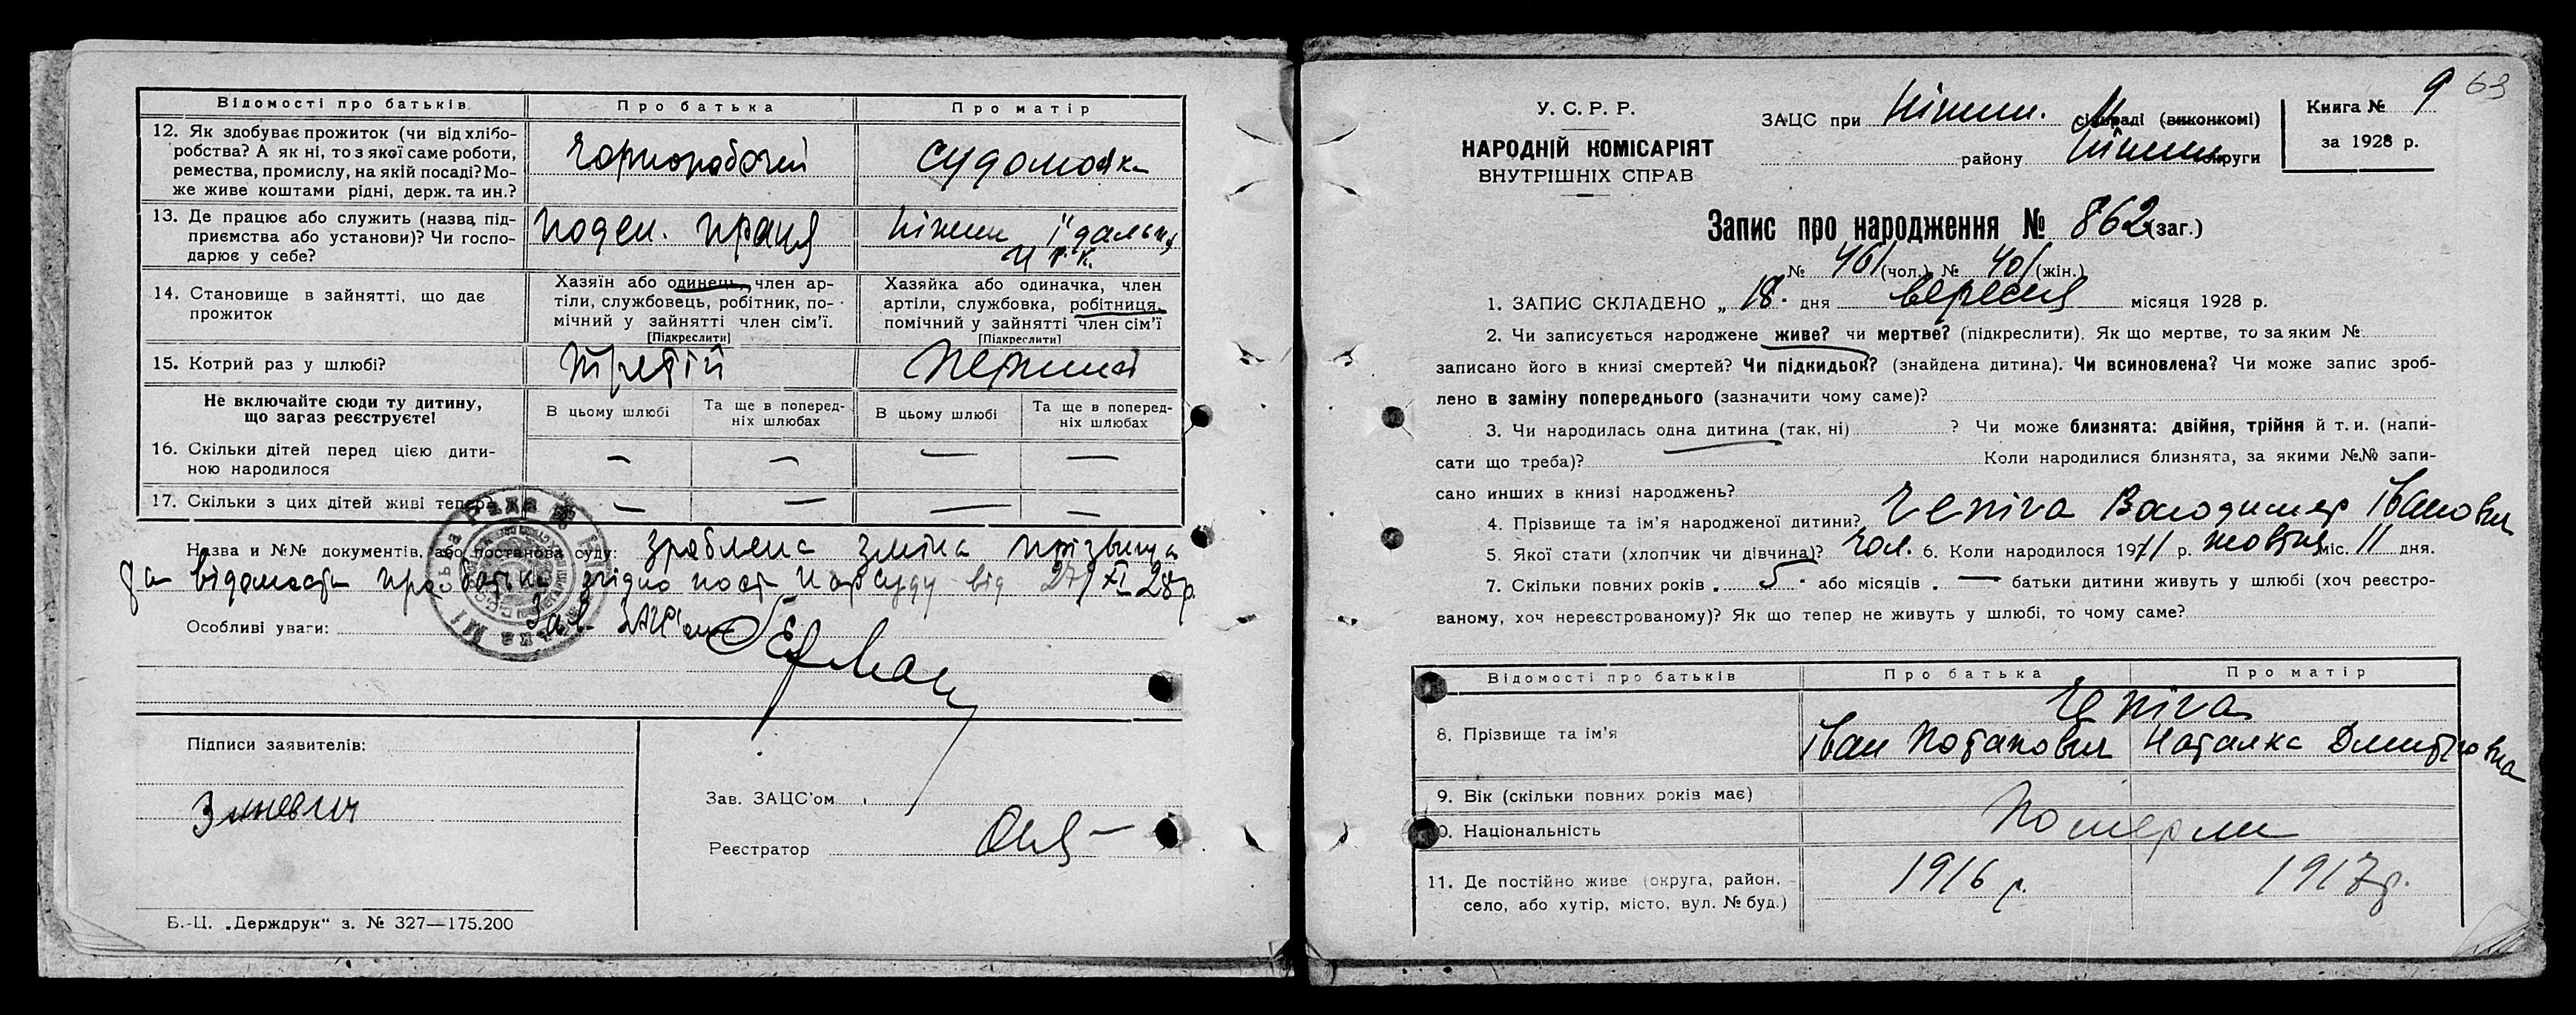 Відомості про батьків Про батька Про матір
12. Як здобуває прожиток (чи від хлібо-
робства? А як ні, то з якої саме роботи,
ремества, промислу, на якій посаді? Мо-
же живе коштами рідні, держ. та ин.?
Чорноробочий судомойка
13. Де працює або служить (назва під-
приємства або установи)? Чи госпо-
дарює у себе?
поден. праця Ніжин їдальня
Ц.р.к.
14. Становище в зайнятті, що дає
прожиток
Хазяїн або одинець, член ар-
тіли, службовець, робітник, по-
мічний у зайнятті член сім'ї.
[Підкреслити]
Хазяйка або одиначка, член
артіли, службовка, робітниця,
помічний у зайнятті член сім'ї
[Підкреслити]
15. Котрий раз у шлюбі? третій перший
Не включайте сюди ту дитину,
що загаз реєструєте!
В цьому шлюбі Та ще в поперед-
ніх шлюбах В цьому шлюбі Та ще в поперед-
ніх шлюбах
16. Скільки дітей перед цією дити-
ною народилося — — — —
17. Скільки з цих дітей живі тепер? — — — —
Назва и №№ документів, або постанова суду: зроблена зміна прізвища
та відомости про батька згідно пост. Нарсуду від 27/XI 28 р.
Особливі уваги: Зав. ЗАЦС'ом
Підписи заявителів:
Зіневич
Зав. ЗАЦС'ом
Реєстратор
Б.-Ц. „Держдрук" з. № 327—175.200
63
У. С. Р. Р.
НАРОДНІЙ КОМІСАРІЯТ
ВНУТРІШНІХ СПРАВ
ЗАЦС при Ніжин. М сільраді (виконкомі)
району Ніжин округи
Книга № 9
за 1928 р.
Запис про народження № 862 (заг.)
№ 461 (чол.) № 401 (жін.)
1. ЗАПИС СКЛАДЕНО „ 18 . дня вересня місяця 1928 р.
2. Чи записується народжене живе? чи мертве? (підкреслити). Як що мертве, то за яким №
записано його в книзі смертей? Чи підкидьок? (знайдена дитина). Чи всиновлена? Чи може запис зроб-
лено в заміну попереднього (зазначити чому саме)?
3. Чи народилась одна дитина (так, ні) ? Чи може близнята: двійня, трійня й т. и. (напи-
сати що треба)? Коли народилися близнята, за якими №№ запи-
сано инших в книзі народжень?
4. Прізвище та ім'я народженої дитини? Чепіга Володимер Іванович
5. Якої стати (хлопчик чи дівчина)? Чол. 6. Коли народилося 1911 р. жовтня міс. 11 дня.
7. Скільки повних років „ 5 " або місяців „ — батьки дитини живуть у шлюбі (хоч реєстро-
ваному, хоч нереєстрованому)? Як що тепер не живуть у шлюбі, то чому саме?
Відомості про батьків Про батька Про матір
Чепіга
8. Прізвище та ім'я Іван Потапович Наталка Дмитровна
9. Вік (скільки повних років має)
10. Національність Померли
11. Де постійно живе (округа, район,
село, або хутір, місто, вул. № буд.)
1916 р. 1917 р.